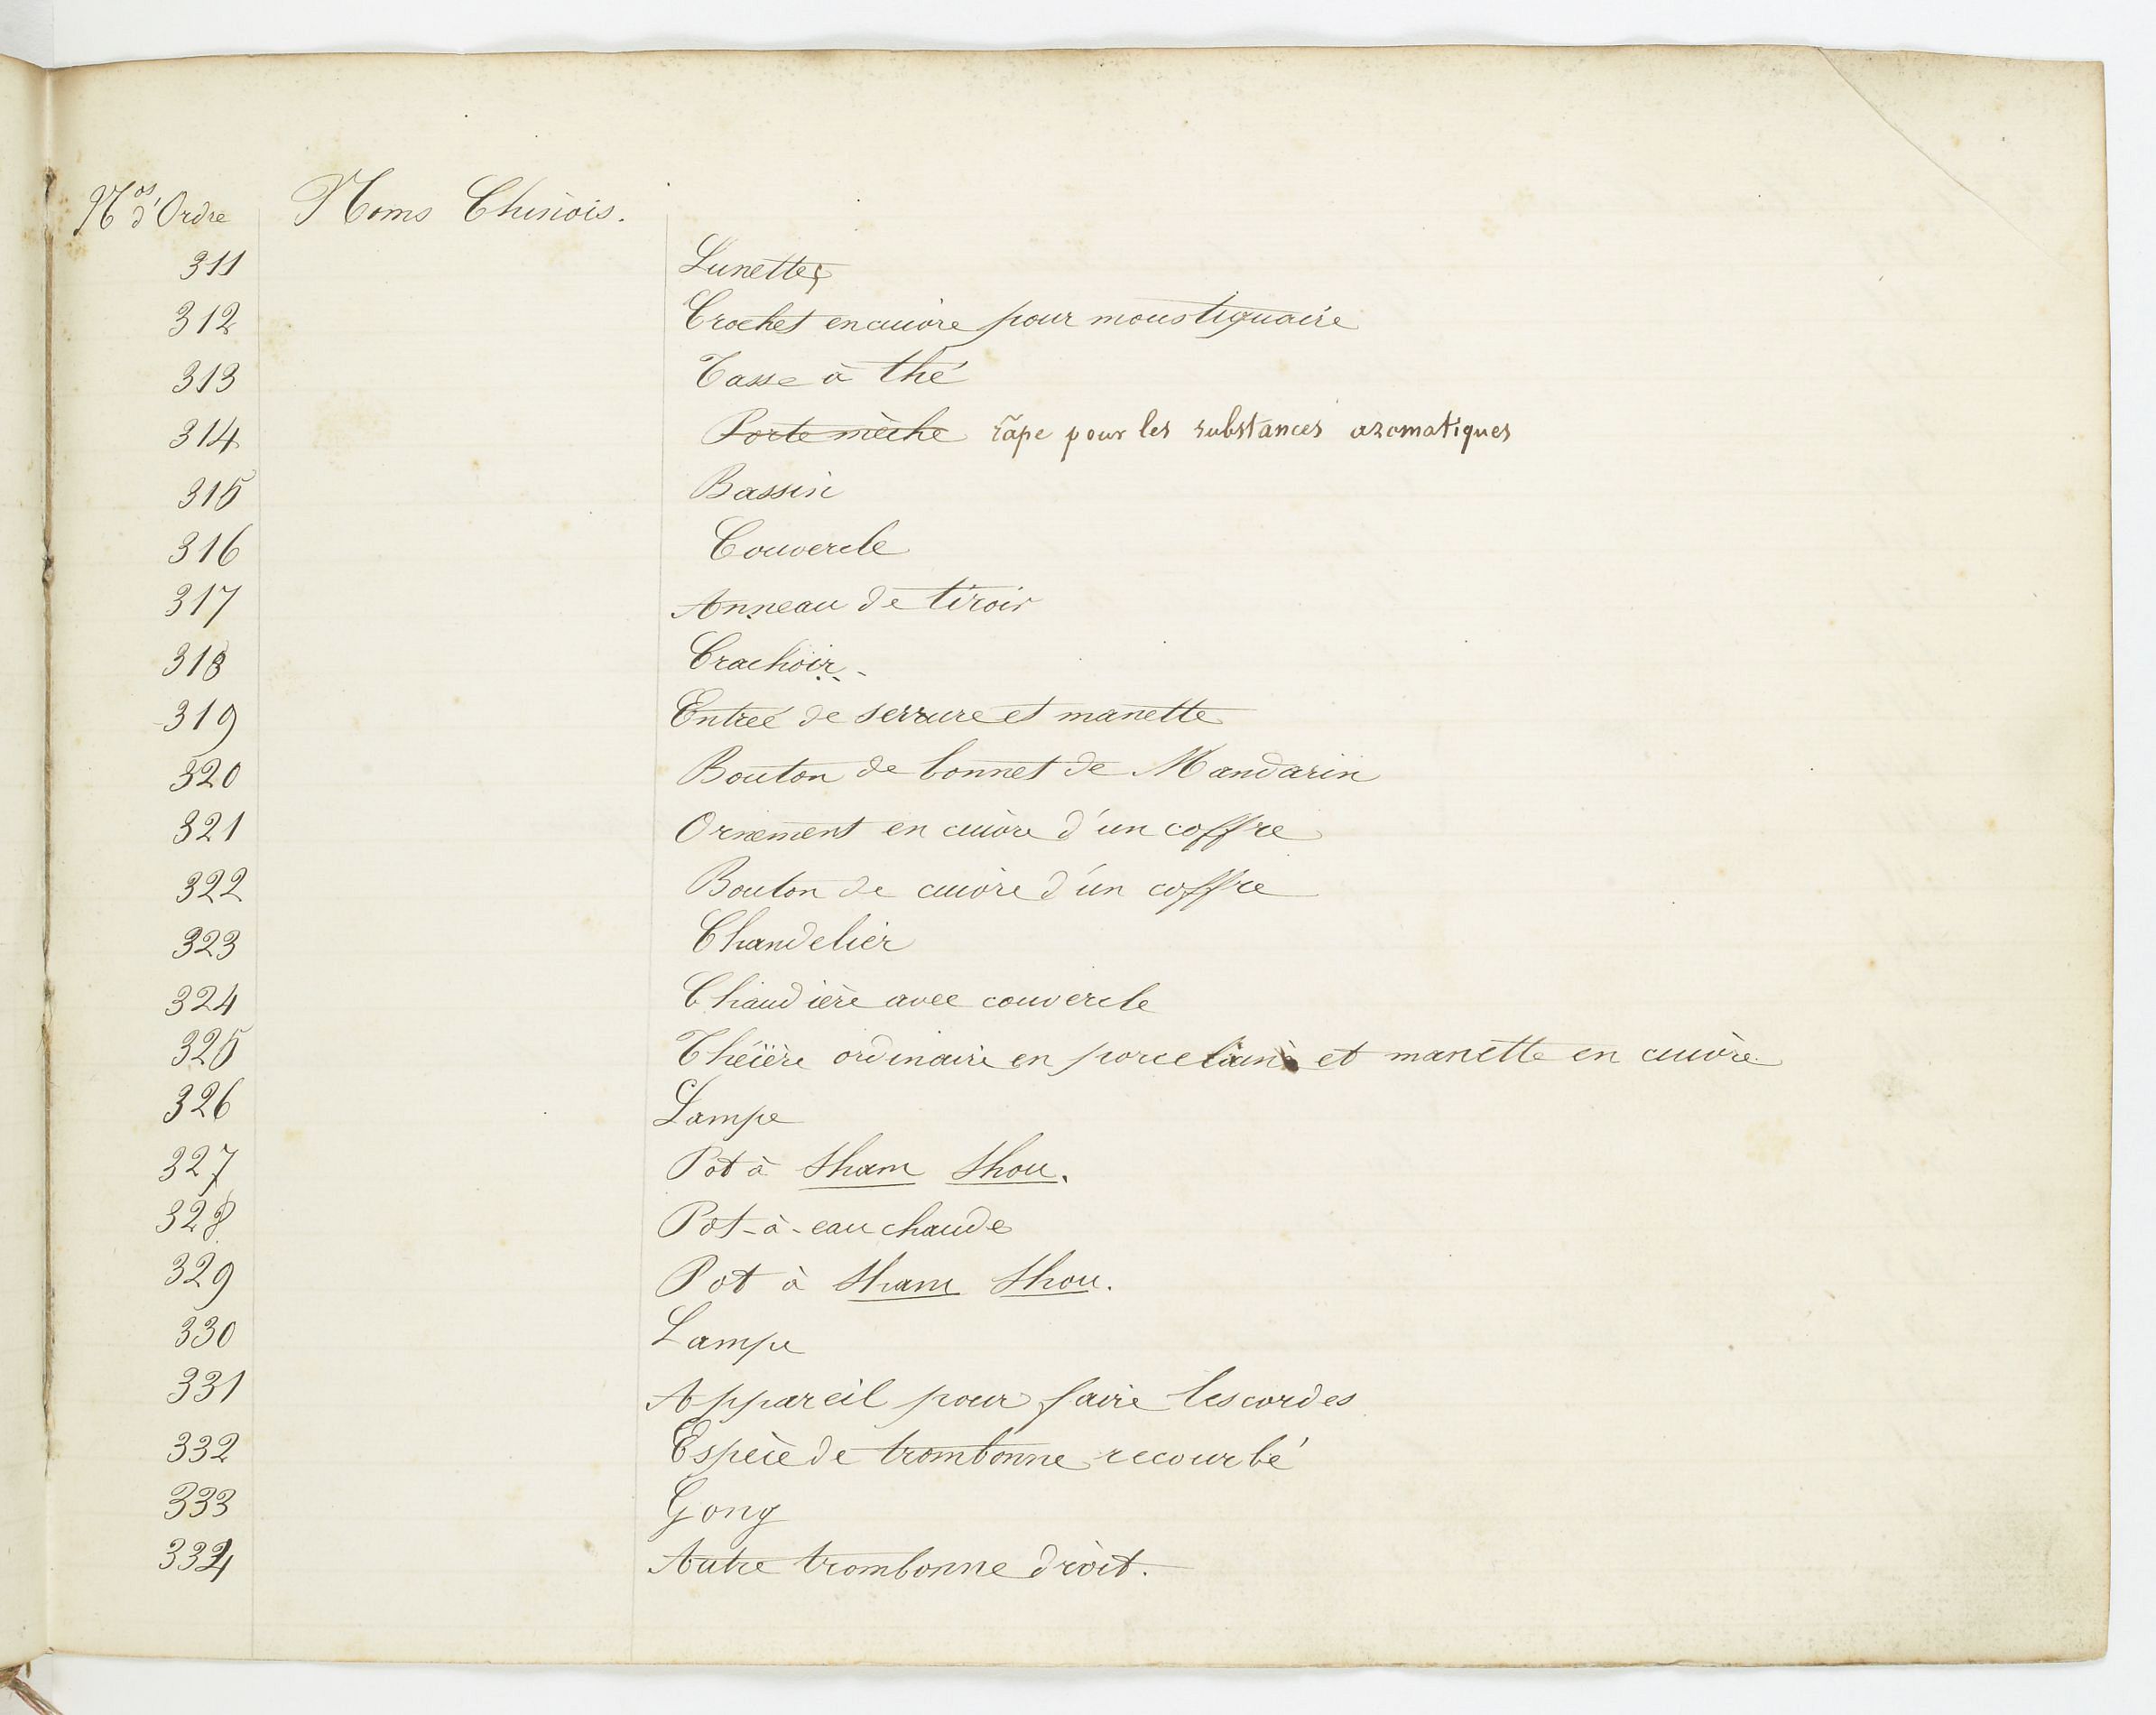 Nos d'Ordre Noms Chinois.
311 Lunettes
312 Crochet en cuivre pour moustiquaire
313 Tasse à thé
314 Porte mèche râpe pour les substances aromatiques
315 Bassin
316 Couvercle
317 Anneau de tiroir
318 Crachoir
319 Entrée de serrure et manette
320 Bouton de bonnet de Mandarin
321 Ornement en cuivre d'un coffre
322 Bouton de cuivre d'un coffre
323 Chandelier
324 Chaudière avec couvercle
325 Théière ordinaire en porcelaine et manette en cuivre
326 Lampe
327 Pot à Sham Shou.
328 Pot-à-eau chaude
329 Pot à Sham Shou.
330 Lampe
331 Appareil pour faire les cordes
332 Espèce de trombonne recourbé
333 Gong
334 Autre trombonne droit.